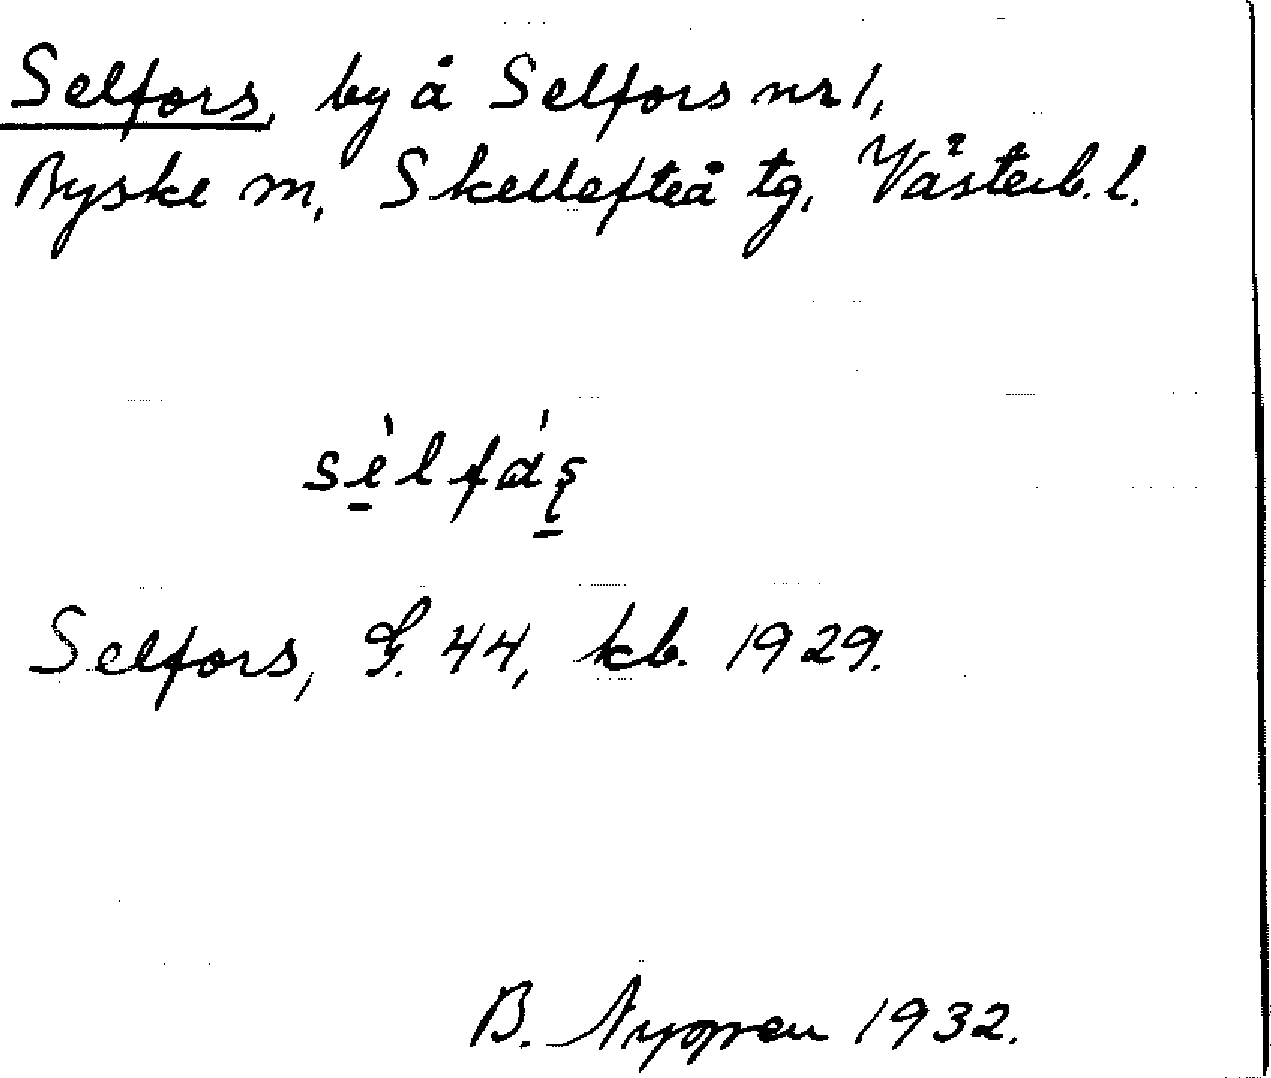 Selfors, by å Selfors nr 1,
Byske sn, Skellefteå tg, Västerb. l.
Selfors, G. 44, kb. 1929.
B. 1932.